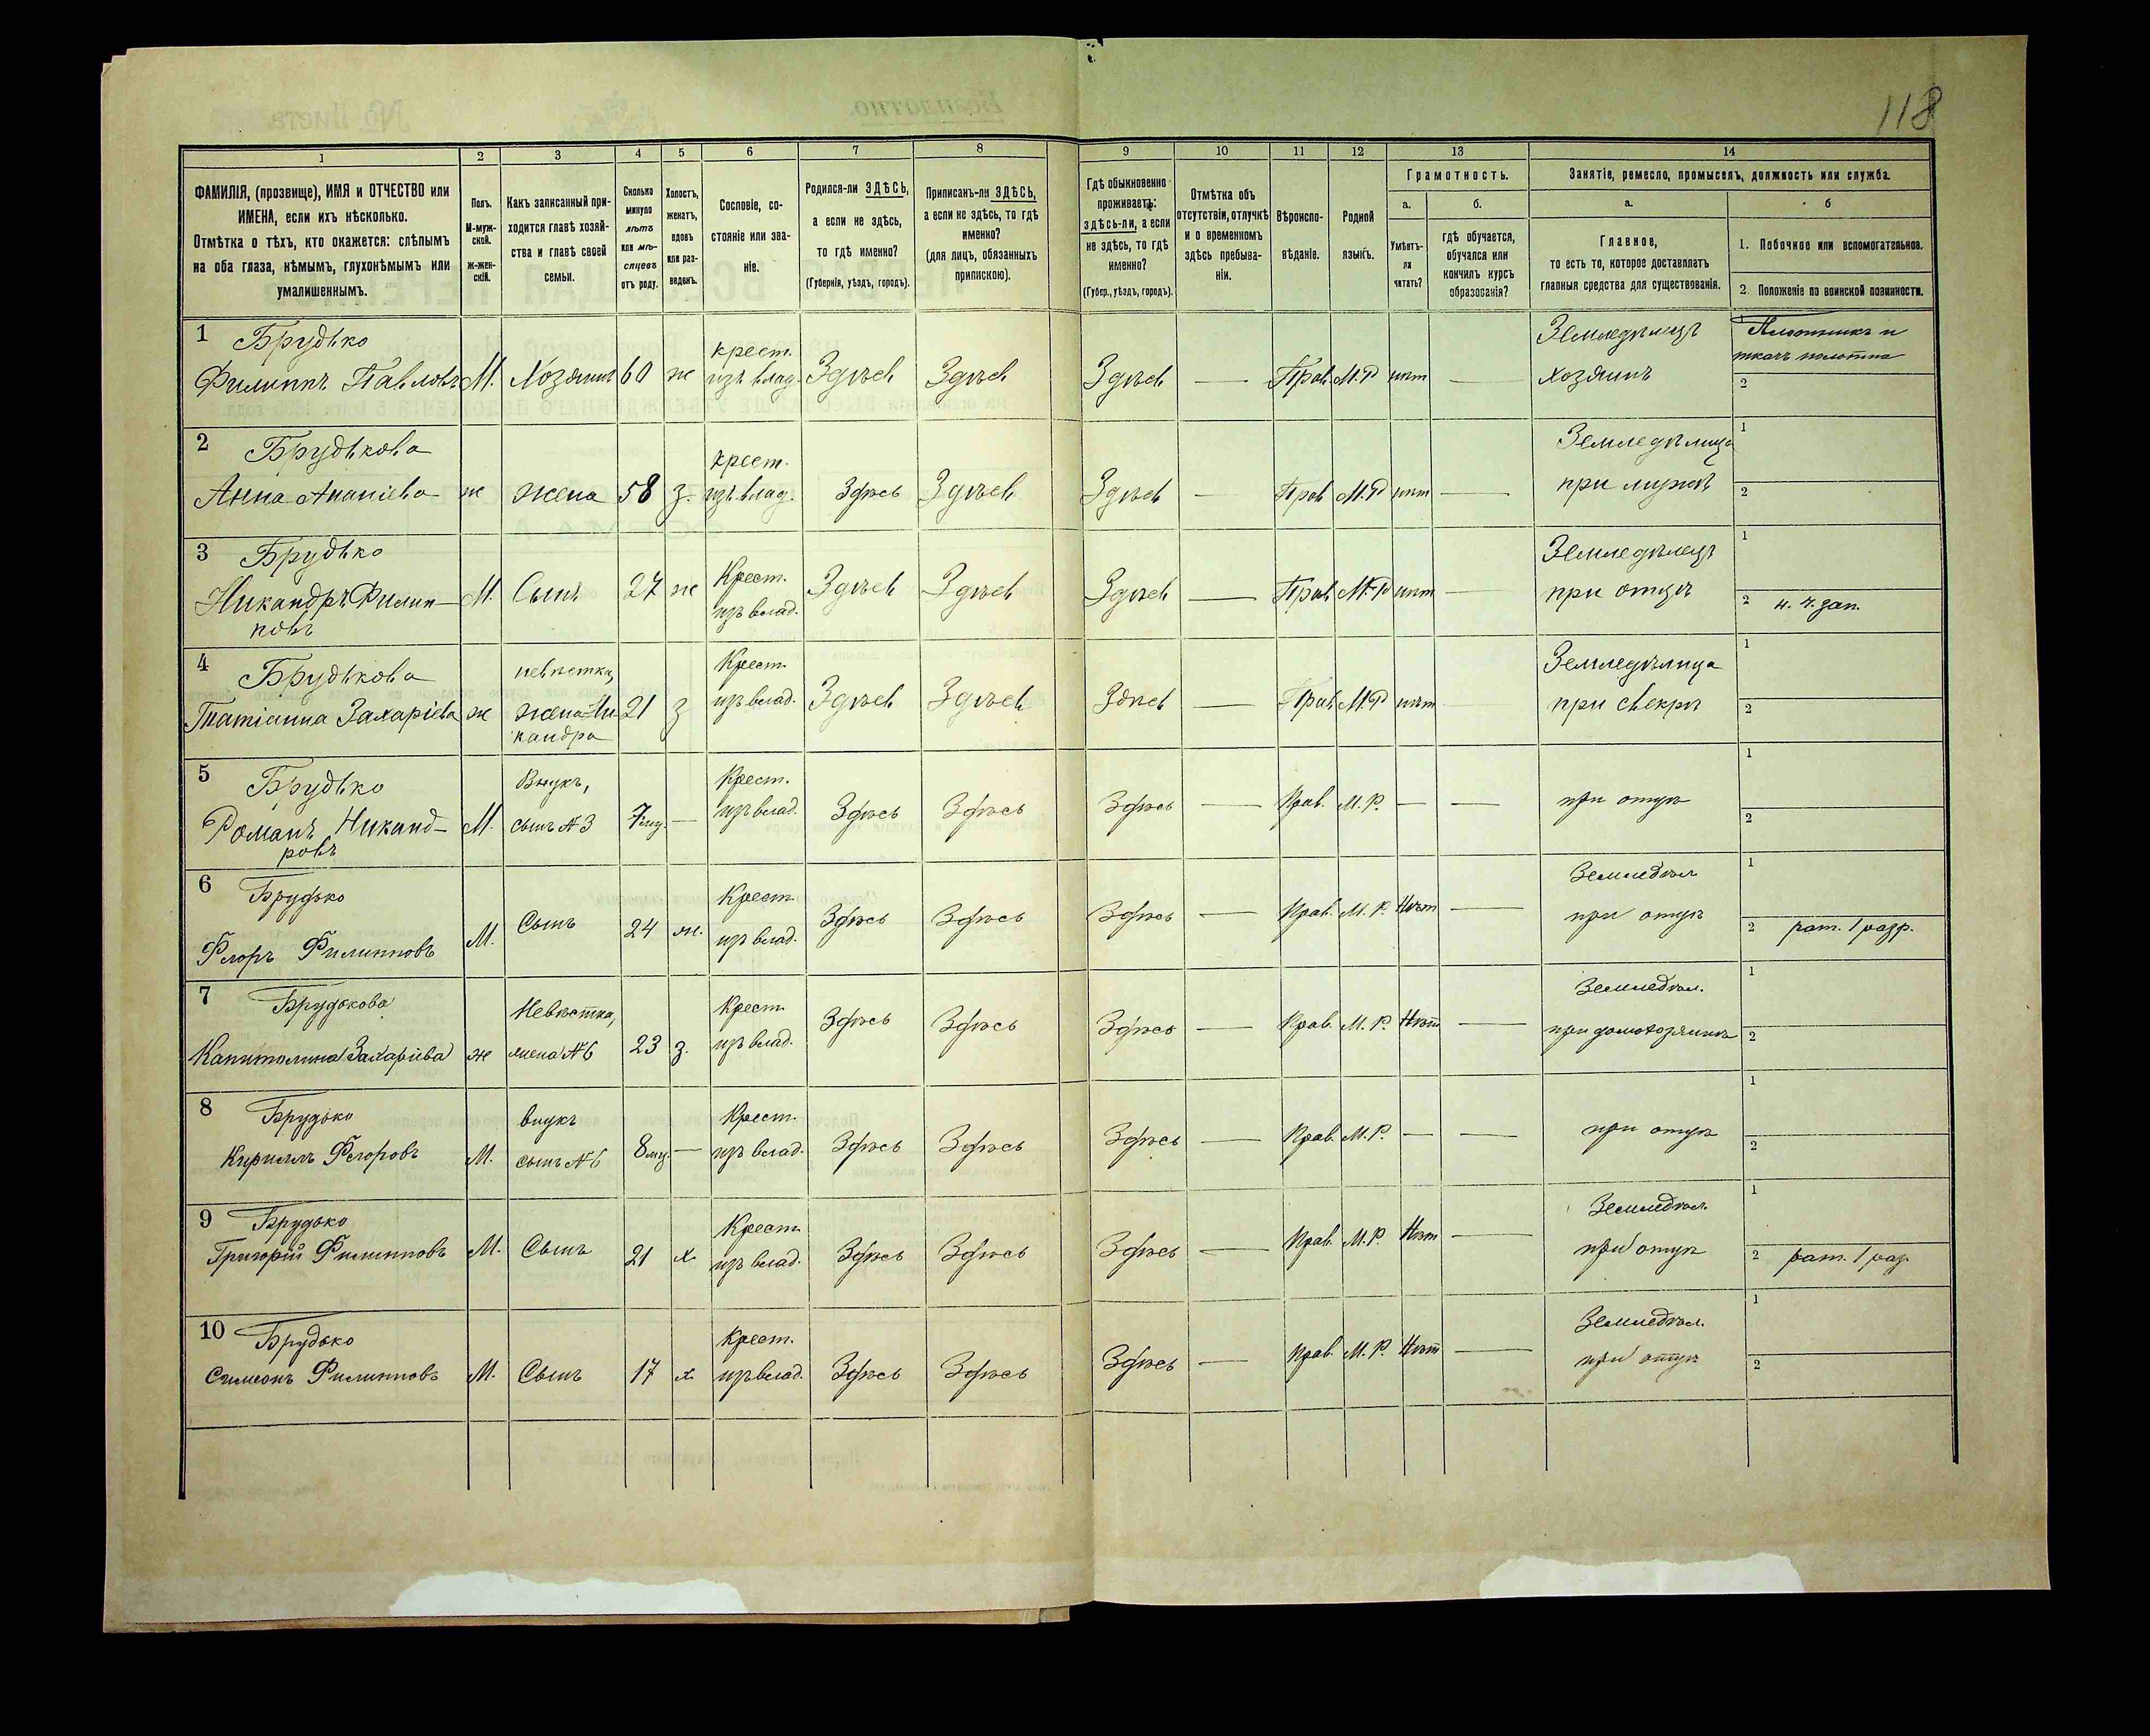 118
1 2 3 4 5 6 7 8 9 10 11 12 13 14
ФАМИЛІЯ, (прозвище), ИМЯ и ОТЧЕСТВО или
ИМЕНА, если ихъ нѣсколько.
Отмѣтка о тѣхъ, кто окажется: слѣпымъ
на оба глаза, нѣмымъ, глухонѣмымъ или
умалишеннымъ.
Полъ.
М-муж-
ской.
ж-жен-
скій.
Какъ записанный при-
ходится главѣ хозяй-
ства и главѣ своей
семьи.
Сколько
минуло
лѣтъ
или мѣ-
сяцевъ
отъ роду.
Холостъ,
женатъ,
вдовъ
или раз-
веденъ.
Сословіе, со-
стояніе или зва-
ніе.
Родился-ли ЗДѢСЬ,
а если не здѣсь,
то гдѣ именно?
(Губернія, уѣздъ, городъ).
Приписанъ-ли ЗДѢСЬ,
а если не здѣсь, то гдѣ
именно?
(для лицъ, обязанныхъ
припискою).
Гдѣ обыкновенно
проживаетъ:
здѣсь-ли, а если
не здѣсь, то гдѣ
именно?
(Губер., уѣздъ, городъ).
Отмѣтка объ
отсутствіи, отлучкѣ
и о временномъ
здѣсь пребыва-
ніи.
Вѣроиспо-
вѣданіе.
Родной
языкъ.
Грамотность.
а.
Умѣетъ-
ли
читать?
б.
гдѣ обучается,
обучался или
кончилъ курсъ
образованія?
Занятіе, ремесло, промыселъ, должность или служба.
а.
Главное,
то есть то, которое доставляетъ
главныя средства для существованія.
б
1. Побочное или вспомогательное.
2. Положеніе по воинской повинности.
1 Брудько
Филиппъ Павловъ М. Хозяинъ 60 ж крест. изъ влад. Здѣсь Здѣсь Здѣсь — Прав. М.Р нѣт — Земледѣлецъ хозяинъ
1 Плотникъ и
ткачъ полотна
2
2 Брудькова
Анна Ананіева ж жена 58 з. крест. изъ влад. Здѣсь Здѣсь Здѣсь — Прав М.Р нѣт — Земледѣлица при мужѣ
1
2
3 Брудько
Никандръ Филип-
повъ М. Сынъ 27 ж Крест. изъ влад. Здѣсь Здѣсь Здѣсь — Прав М.Р нѣт — Земледѣлецъ при отцѣ
1
2 н. ч. зап.
4 Брудькова
Татіанна Захаріева ж невѣстка, жена Ни-
кандра 21 з Крест. изъ влад. Здѣсь Здѣсь Здѣсь — Прав М.Р нѣт Земледѣлица при свекрѣ
1
2
5 Брудько
Романъ Никанд-
ровъ М. Внукъ, сынъ №3 7 мц. — Крест. изъ влад. Здѣсь Здѣсь Здѣсь — Прав. М.Р. — — при отцѣ
1
2
6 Брудько
Флоръ Филипповъ М. Сынъ 24 ж. Крест. изъ влад. Здѣсь Здѣсь Здѣсь — Прав. М.Р. Нѣт — Земледѣл. при отцѣ
1
2 рат. 1 разр.
7 Брудькова
Капитолина Захаріева ж Невѣстка, жена №6 23 з. Крест. изъ влад. Здѣсь Здѣсь Здѣсь — Прав. М.Р. Нѣт — Земледѣл. при домохозяинѣ
1
2
8 Брудько
Кириллъ Флоровъ М. внукъ сынъ №6 8 мц — Крест. изъ влад. Здѣсь Здѣсь Здѣсь — Прав. М.Р. — — при отцѣ
1
2
9 Брудько
Григорій Филипповъ М. Сынъ 21 х Крест. изъ влад. Здѣсь Здѣсь Здѣсь — Прав. М.Р. Нѣт — Земледѣл. при отцѣ
1
2 рат. 1 раз.
10 Брудько
Симеонъ Филипповъ М. Сынъ 17 х Крест. изъ влад. Здѣсь Здѣсь Здѣсь — Прав. М.Р. Нѣт — Земледѣл. при отцѣ
1
2